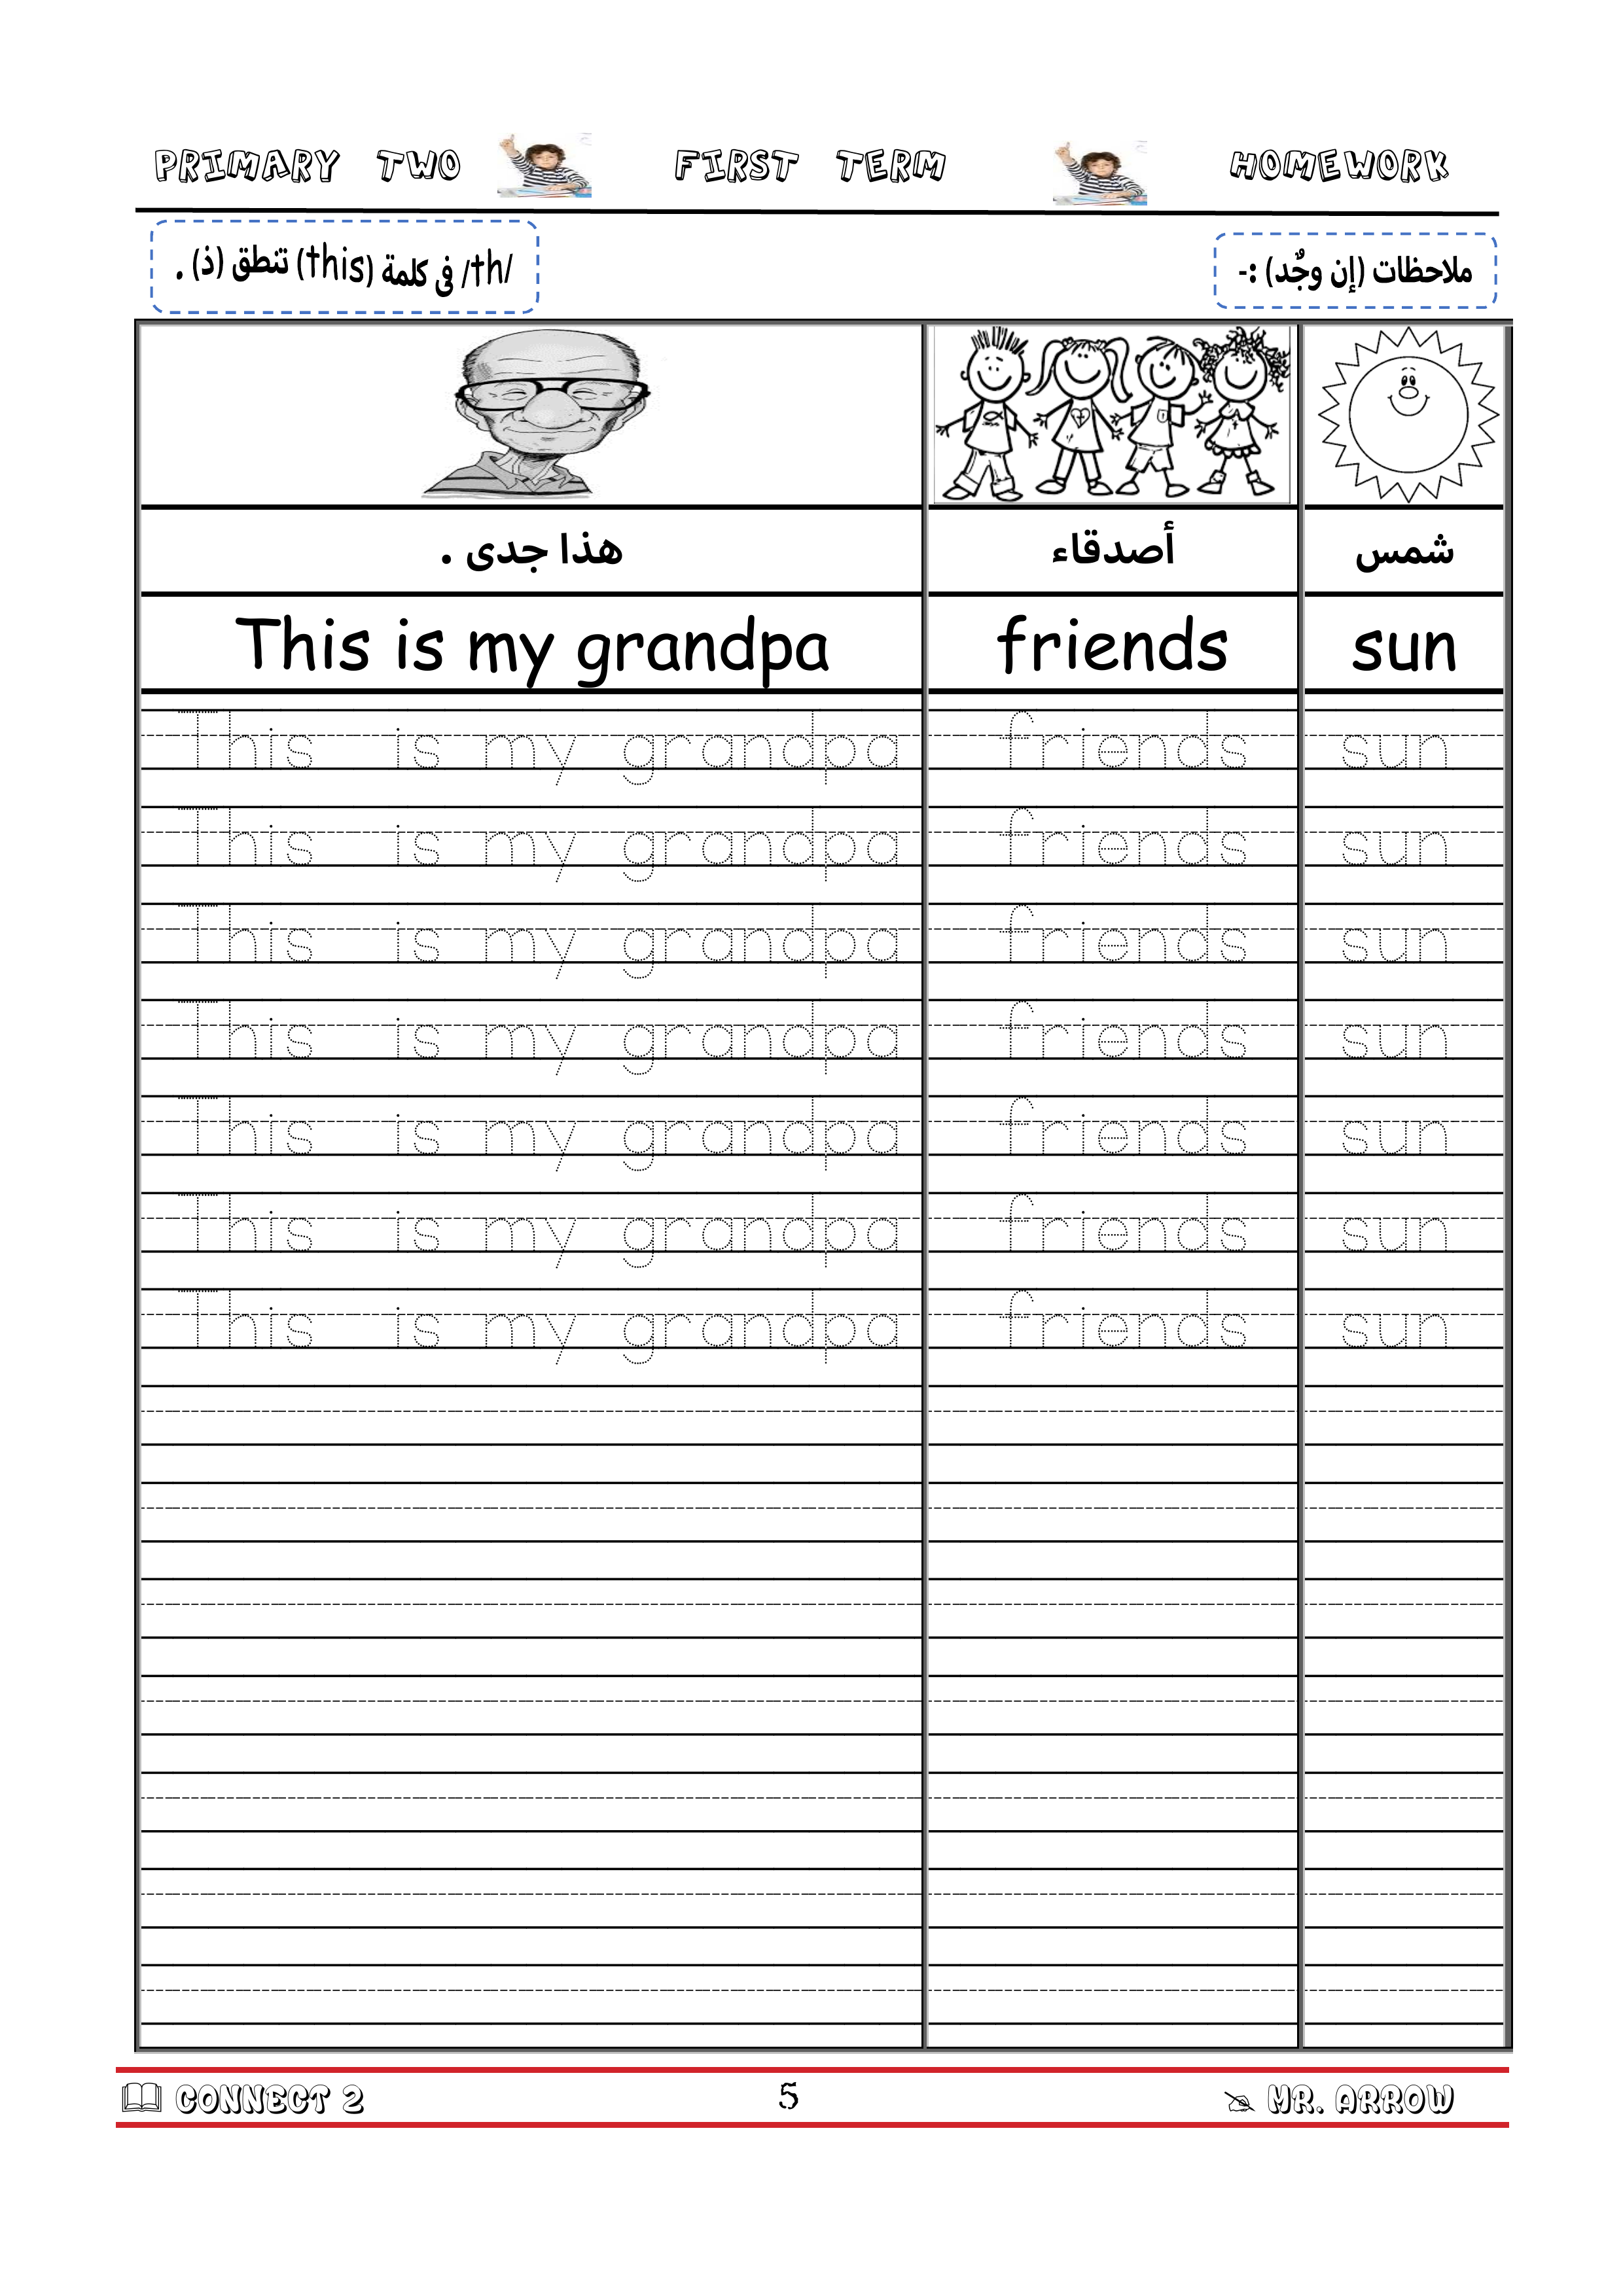 PRIMARY TWO FIRST TERM HOMEWORK
ملاحظات (إن وجُد) :-
/th/ فى كلمة (this) تنطق (ذ) .
هذا جدى . أصدقاء شمس
This is my grandpa friends sun
This is my grandpa friends sun
This is my grandpa friends sun
This is my grandpa friends sun
This is my grandpa friends sun
This is my grandpa friends sun
This is my grandpa friends sun
This is my grandpa friends sun
CONNECT 2 5 MR. ARROW